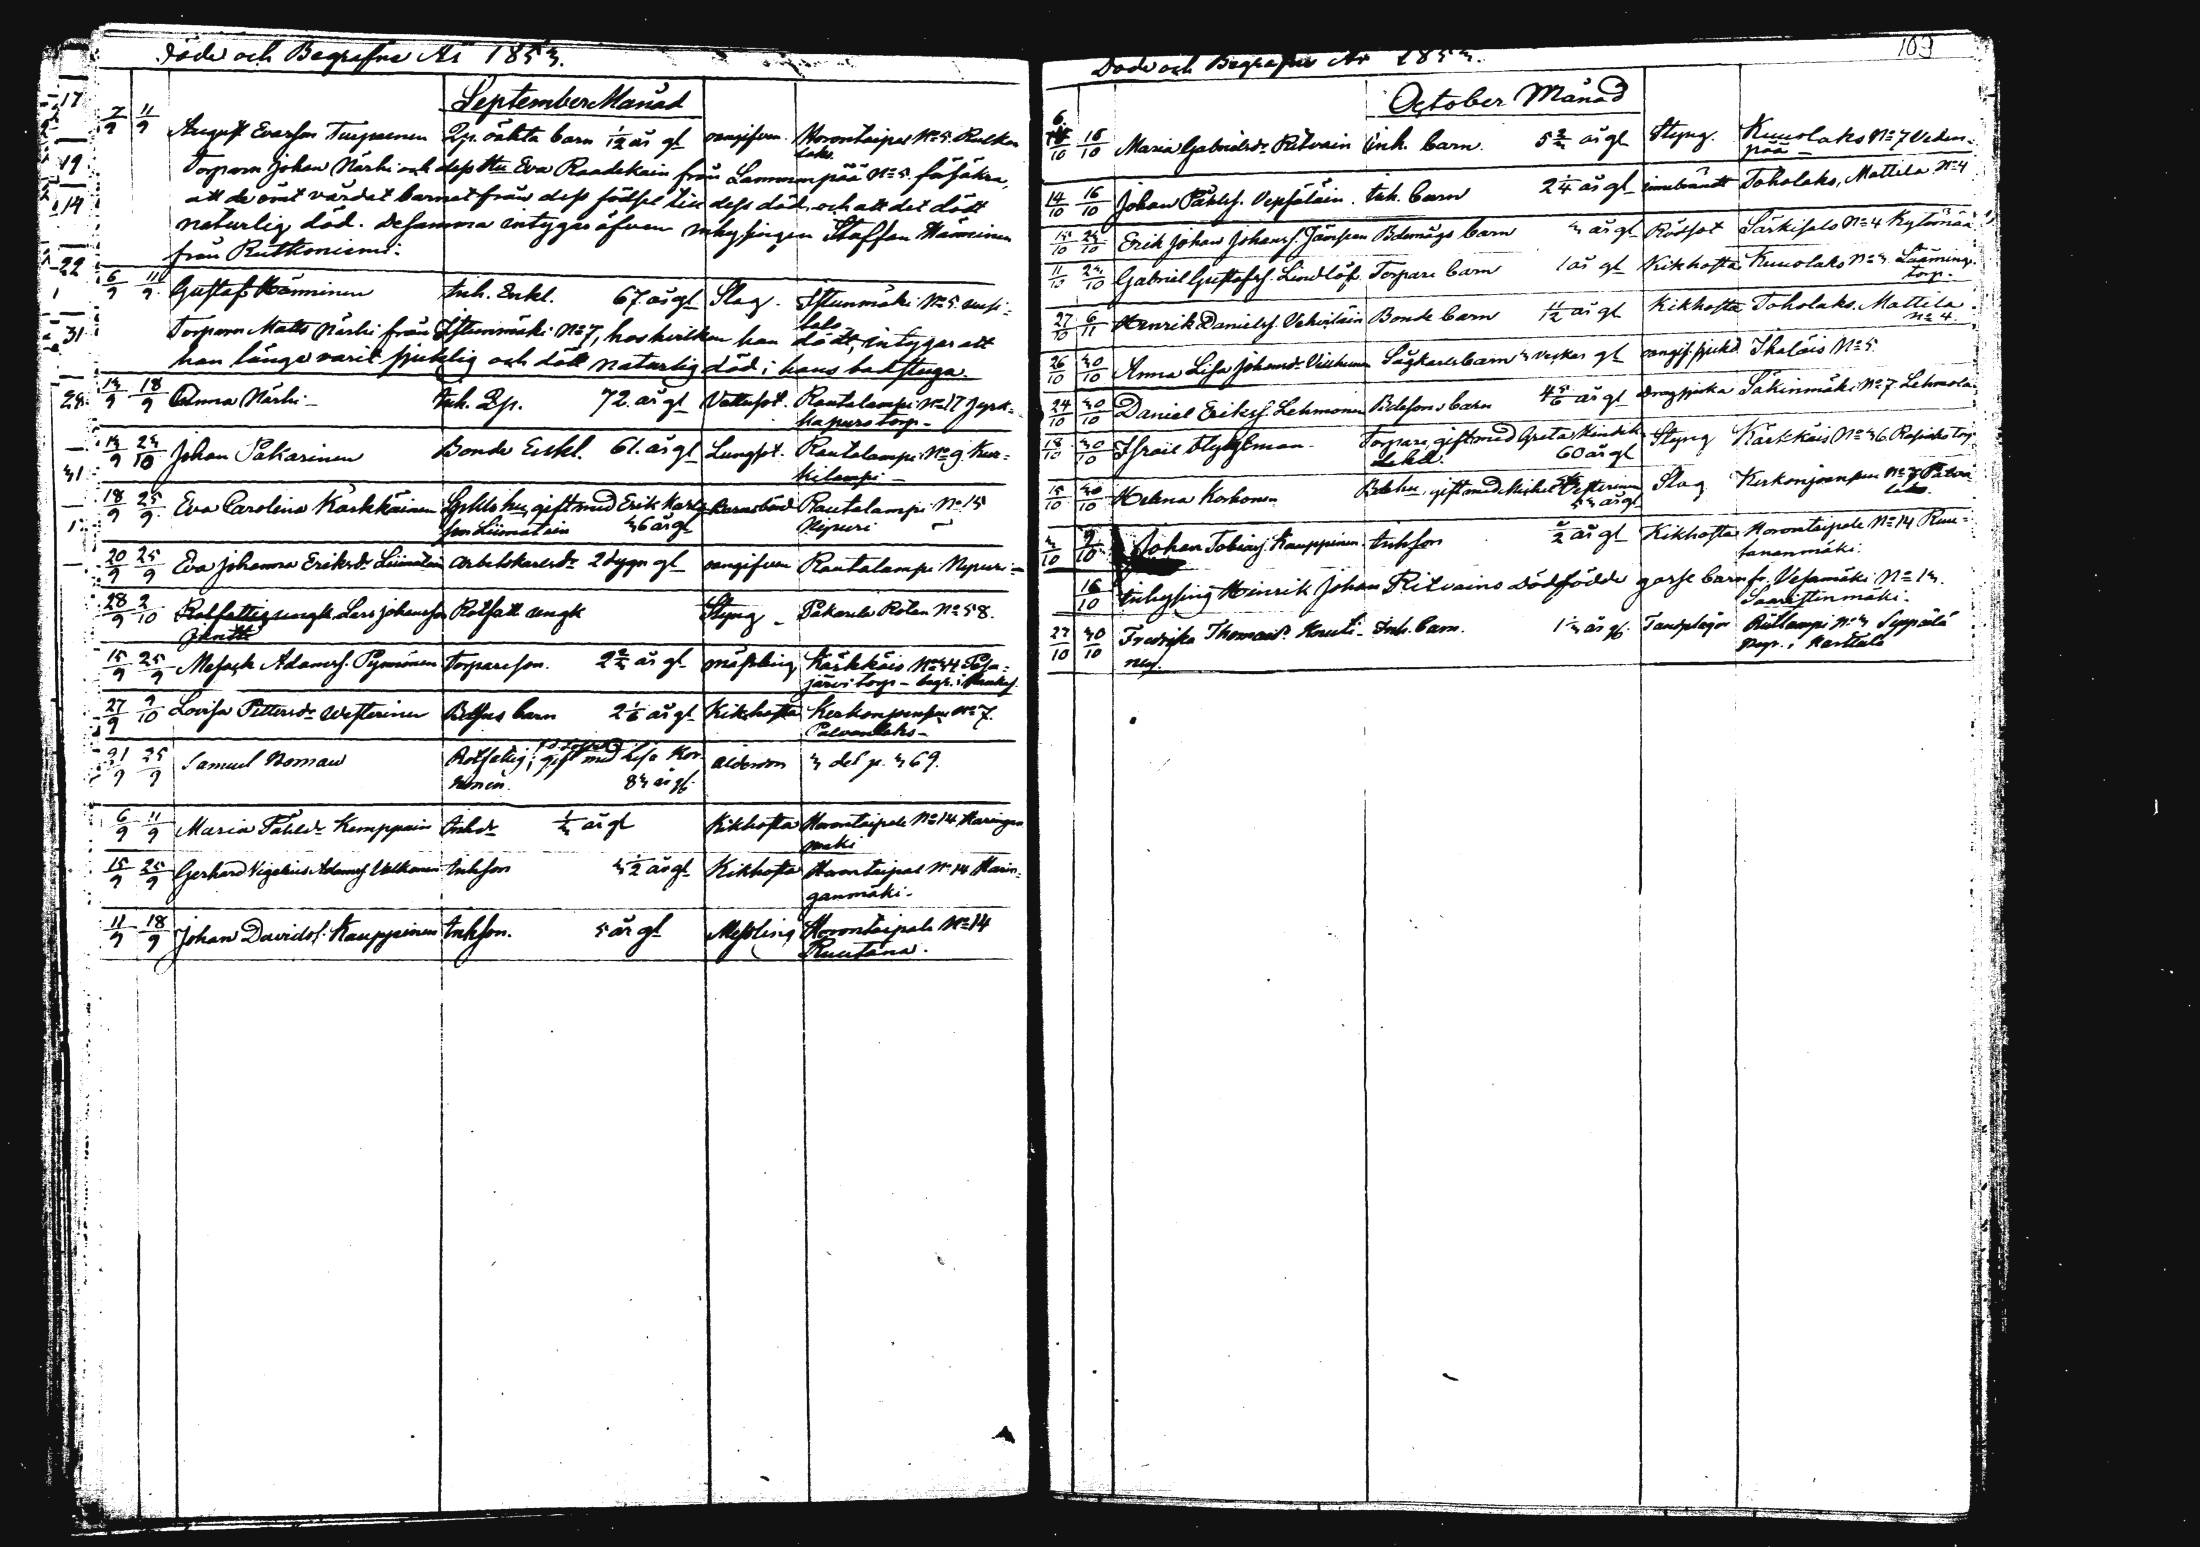 Döde och Begrafne År 1853.
September Månad
7/9 11/9 August Evasson Turpeinen Qp. oäkta barn 1/12 år gl oangifven. Horontaipal No 5. Rulkon
laks.
Torparen Johan Närhi och dess Hu Eva Raadekain från Lammenpää No 5. försäkra,
att de ömt vårdat barnet från dess födsel till dess död, och att det dödt
naturlig död. Desamma intygas äfven inhysingen Staffan Hänninen
från Rutkoniemi.
6/9 11/9 Gustaf Hänninen Inh. Enkl. 67. år gl Slag. Istunmäki No 5.
talo
Torparen Matts Närhi från Istunmäki No 7, hos hvilken han dödt, intygar att
han länge varit sjuklig och dödt naturlig död i hans badstuga.
13/9 18/9 Anna Närhi Inh. Qp. 72. år gl Vattusot. Rautalampi No 17 Jyrk-
torp
13/9 23/10 Johan Pakarinen Bonde Enkl. 61. år gl Lungsot. Rautalampi No 9. Kur-
kilampi
18/9 25/9 Eva Carolina Kärkkäinen gift med Erik Karls- Barnsbörd Rautalampi No 15
son Liimatain 36 år gl Nipuri
20/9 25/9 Eva Johanna Eriksdr Liimatain arbetskarlsdr 2 dygn gl oangifven Rautalampi Nipuri
28/9 2/10 Rotfattig ungk. Lars Johansson Rotfatt ungk Styng Pakarila Roten No 58.
15/9 25/9 Mesack Adamss. Pynnönen Torpareson. 2 3/4 år gl mässling Kärkkäis No 34
järvi torp - begr. i
27/9 9/10 Lovisa Pettersdr Westerinen barn 2 1/6 år gl Kikhosta Kerkonjoensuu No 7.
21/9 25/9 Samuel Roman Rotfattig, gift med Lisa Kor-
honen 83 år gl. ålderdom 3 del p. 369.
6/9 11/9 Maria Påhlsdr Kemppain Inhdr 1/3 år gl Kikhosta Horontaipale No 14 Haringan
mäki
15/9 25/9 Gerhard Vigelius Adamss Valkonen Inhson 3 1/2 år gl Kikhosta Horontaipal No 14 Harin-
ganmäki.
11/9 18/9 Johan Davidss. Kauppinen Inhson. 5 år gl Mässling Horontaipale No 14
Ruutana.
Döde och Begrafne År 1853.
103
October Månad
6/10 16/10 Maria Gabrielsdr Ritvain inh. barn. 5 3/4 år gl Styng. Kuuolaks No 7 Veden-
pää
14/10 16/10 Johan Påhlss. Vepsäläin. Inh. barn 2 1/4 år gl innebrändt Toholaks, Mattila No 4
15/10 23/10 Erik Johan Johanss. Jämsen Bdemågs barn 3 år gl Rödsot Särkisalo No 4 Kylömää
11/10 23/10 Gabriel Gustafss. Lindlöf Torpare barn 1 år gl Kikhosta Kuuolaks No 3.
torp.
27/10 6/11 Henrik Danielss. Vehviläin Bonde barn 11/12 år gl Kikhosta Toholaks. Mattila
No 4.
26/10 30/10 Anna Lisa Johansdr Sågkarls barn 3 veckor gl oangif. sjukd. Ihalais No 5
24/10 30/10 Daniel Erikss. Lehmonen Bdesons barn 4 5/6 år gl dragsjuka Säkinmäki No 7 Lehmola
18/10 30/10 Israel Flygman Torpare, gift med Greta Hendr. Styng Kärkkäis No 36 torp
60 år gl
15/10 30/10 Helena Korhonen gift med Michel Vesterinen Slag Kerkonjoensuu No 7
53 år gl
3/10 9/10 Johan Tobiass Kauppinen Inhson år gl Kikhosta Horontaipale No 14 Ruu-
tananmäki.
16/10 Inhysing Henrik Johan Ritvains Dödfödde gosse barn fr. Vesamäki No 13.
Saaristinmäki.
27/10 30/10 Fredrika Thomasdr Knuuti- Inh. barn. år gl. Tandplågor No 3 Seppälä
nen. begr. i Karttula